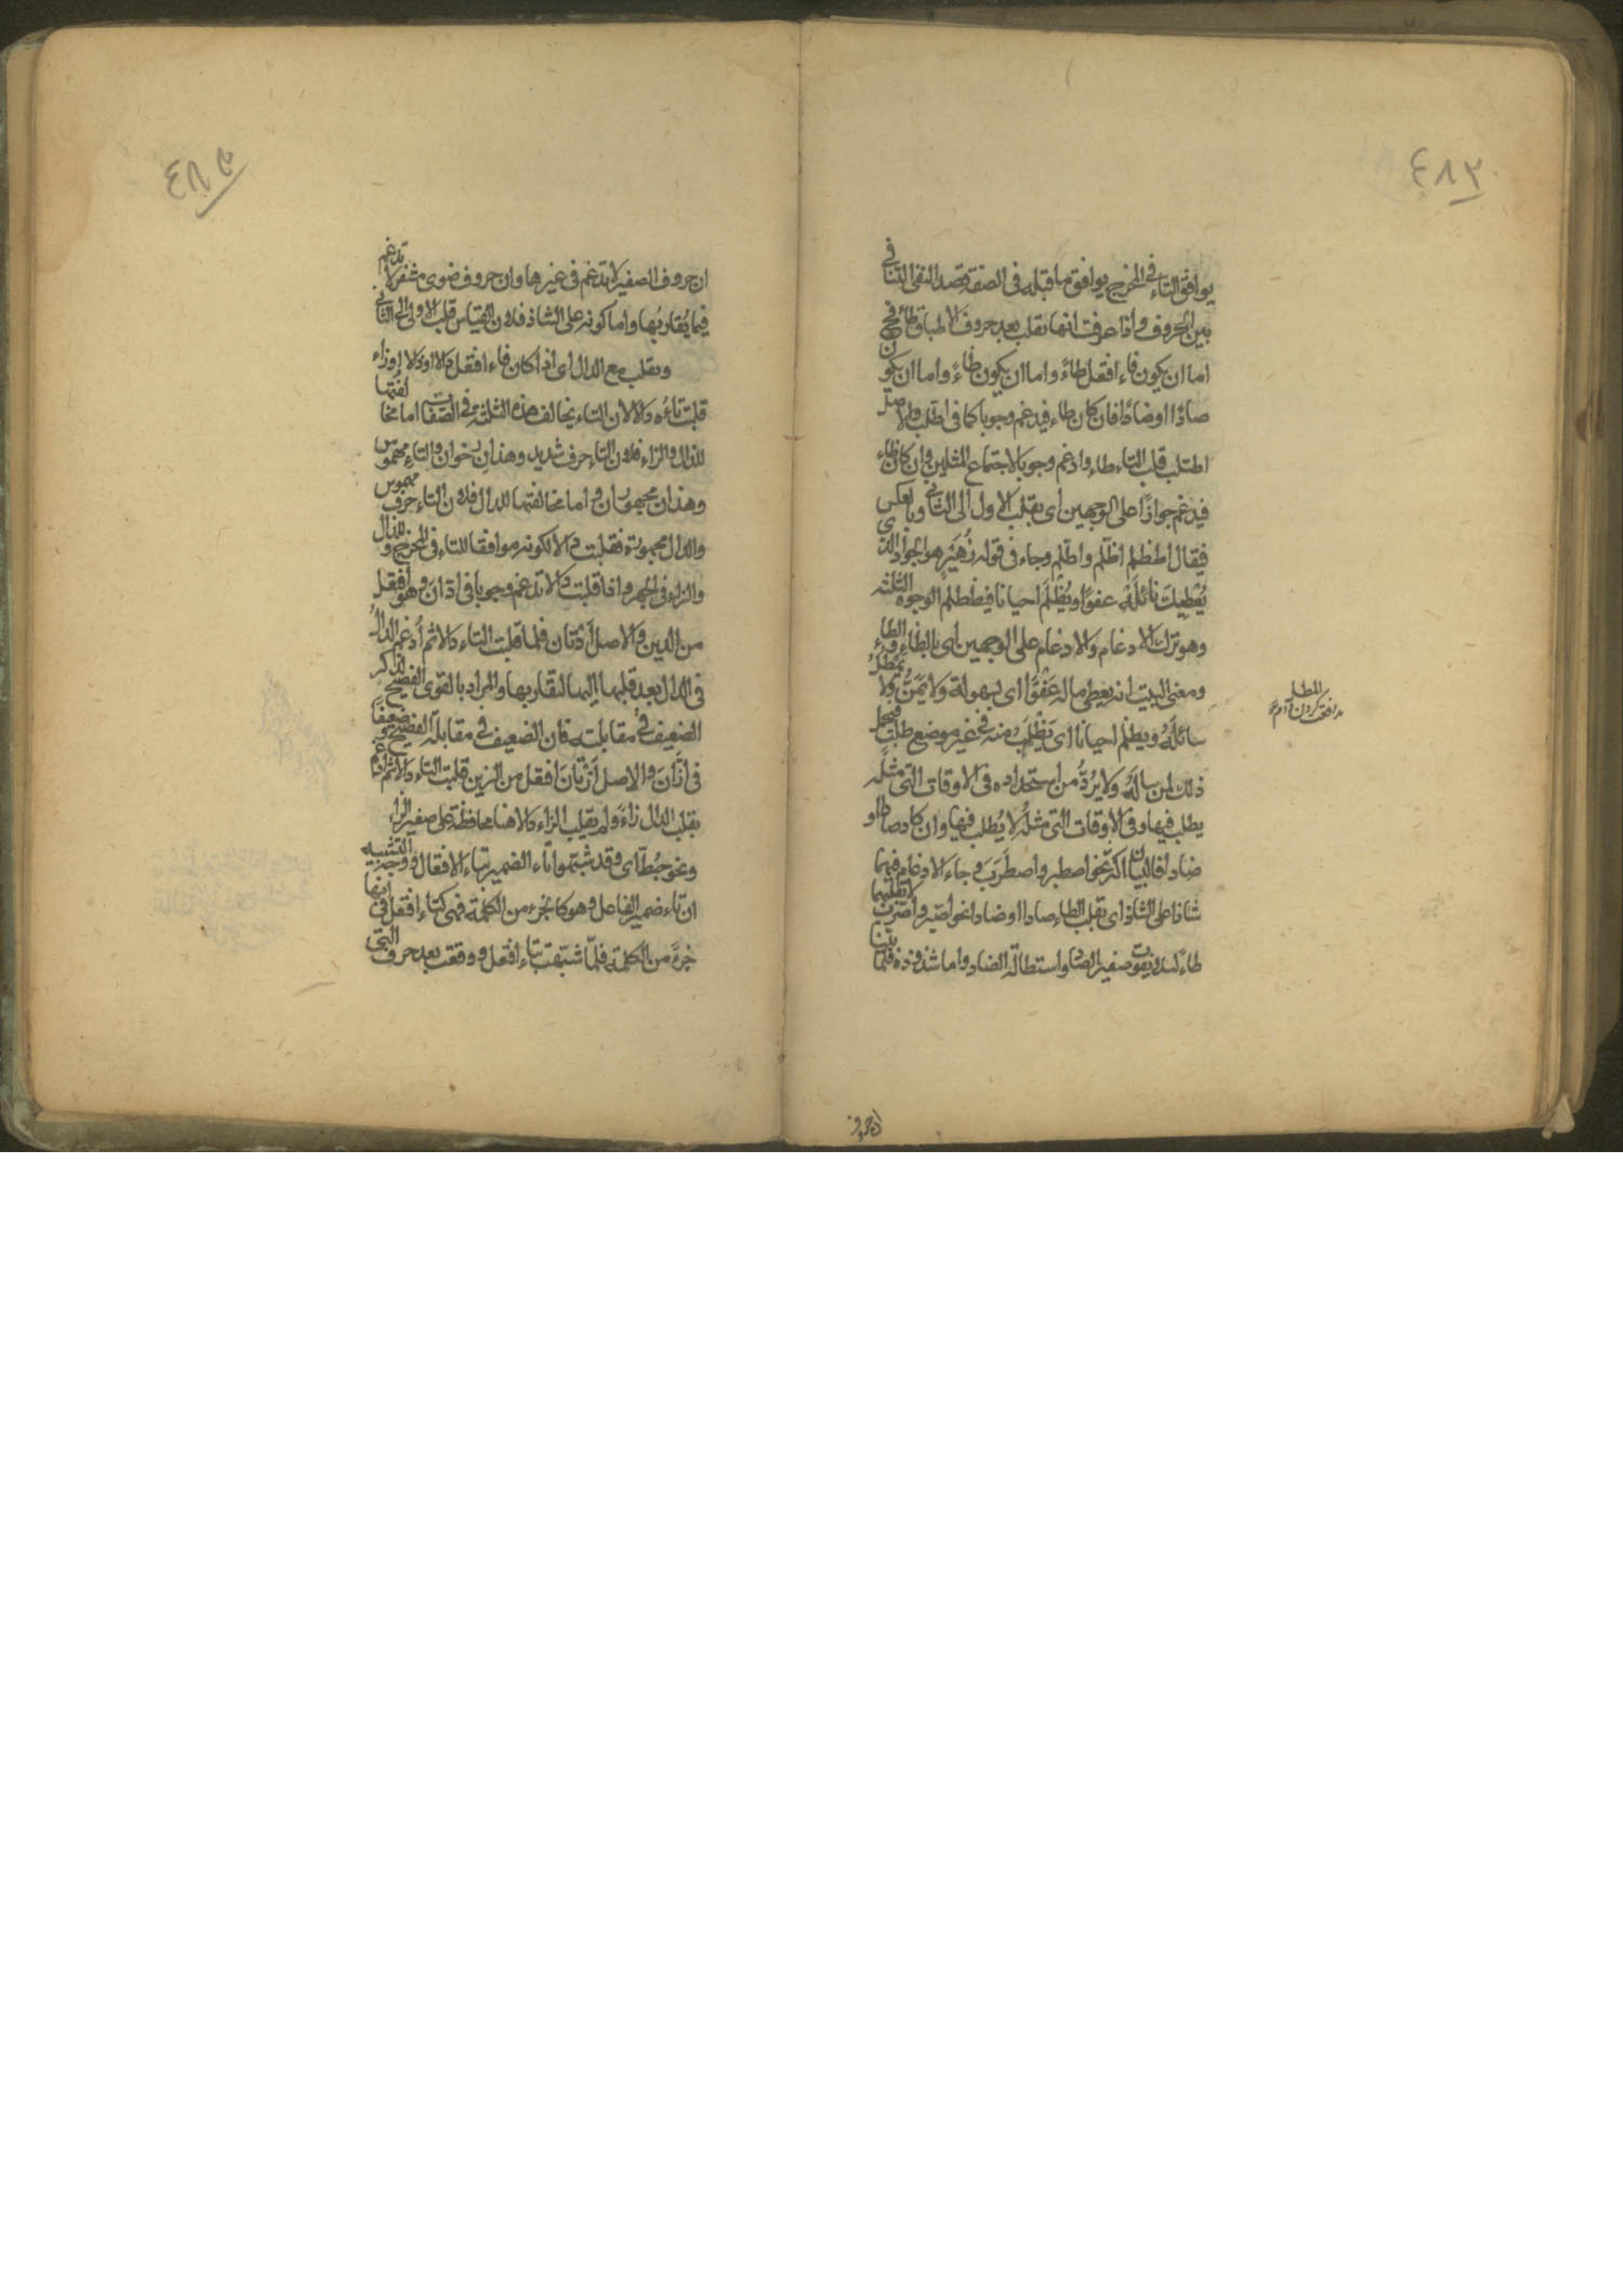 ٤٨٣
يوافق التاء فى المخرج يوافق ما قبله فى الصفة قصدا لنفى التنافى
بين الحروف واذا عرفت انها تقلب بعد حروف الاطباق طاء فح
اما ان يكون فاء افتعل طاءً واما ان يكون ظاءً واما ان يكون
صادًا او ضادًا فان كان طاء فيدغم وجوبا كما فى اطلب والاصل
اطتلب قلب التاء طاء وادغم وجوبا لاجتماع المثلين وان كان ظاء
فيدغم جوازًا على الوجهين اى بقلب الاول الى الثانى وبالعكس
فيقال اظطلم اظلم واطلم وجاء فى قوله زُهَيْر هو الجواد الذى
يُعْطِيكَ نائلَهُ عفوًا ويُظْلَمُ احيانا فيظطلم الوجوه الثلثه
وهو ترك الادغام والادغام على الوجهين اى بالظاء والطاء
ومعنى البيت انه يعطى ماله عَفْوًا اى بسهولة ولا يَمُنُّ ولا يَمْطُلُ
سائلَهُ ويظلم احيانا اى يُطْلَبُ منه فى غير موضع طلب فيحمل
ذلك لمن سالَهُ ولا يَرُدُّ من استجداده فى الاوقات التى مثله
يطلب فيها وفى الاوقات التى مثلُهُ لا يُطلب فيها وان كان صادا او
ضادا فالبيان اكثر نحو اصطبر واضطرَبَ وجاء الادغام فيهما
شاذا على الشاذ اى بقلب الطاء صادا او ضادا نحو اصّبر واضّرب لا بقلبهما
طاءً لئلا يفوت صفير الصاد واستطالة الضاد واما شذوذه فلما بيّنا
المطل
مدافعت كردن
ان حروف
ان حروف الصفير لا تدغم فى غيرها وان حروف ضوى مشفر لا تدغم
فيما يُقاربُها واما كونه على الشاذ فلان القياس قلب الاول الى الثانى
وتقلب مع الدال اى اذا كان فاء افتعل دالا او ذالا او زاء
قلبت تاءُه دالا لان التاء يخالف هذه الثلثة فى الصّفات اما مخالفتها
للذال والزاء فلان التاء حرف شديد وهذان رخوان والتاء مهموس
وهذان مجهوران واما مخالفتها للدال فلان التاء حرف مهموس
والدال مجهورة فقلبت دالا لكونه موافقا للتاء فى المخرج وللذال
والزاء فى الجهر واذا قلبت دالا تدغم وجوبا فى ادّانَ وهو افتعل
من الدين والاصل اَدْتان فلما قلبت التاء دالا ثم اُدغم الدالُ
فى الدال بعد قلبها اليها لتقاربها والمراد بالقوى الفصيح
الضعيف فى مقابلته فان الضعيف فى مقابلة الفصيح وضعيفًا
فى ازّانَ والاصل اَزْتانَ افتعل من الزين قلبت التاء دالا ثم ادغم
بقلب الدال زاءً ولم يقلب الزاء دالا هنا محافظة على صفير الزاء
ونحو خبُطّ اى وقد شبّهوا تاء الضمير بتاء الافتعال ووجه التشبيه
ان تاء ضمير الفاعل وهو كالجزء من الكلمة فهى كتاء افتعل فى انها
جزءٌ من الكلمة فلمّا شبّهت بتاء افتعل ووقعت بعد حرف التى